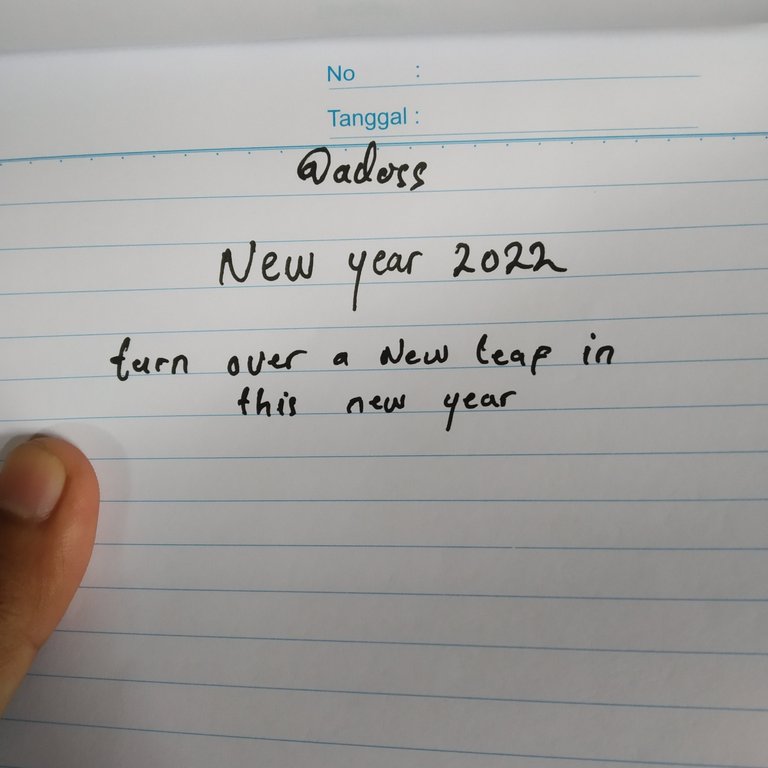 No :
Tanggal :
@adoss
New year 2022
turn over a New leaf in
this new year